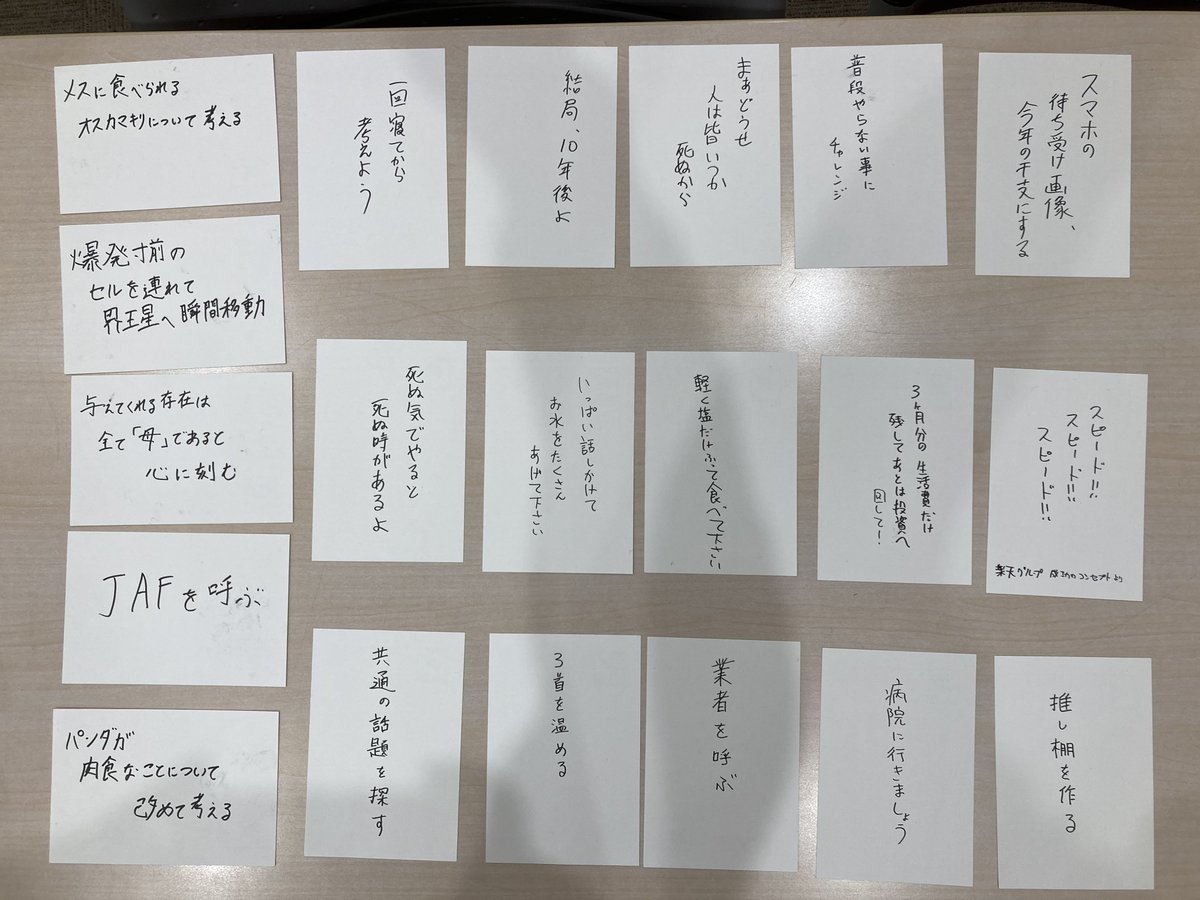 メスに食べられる
オスカマキリについて考える
爆発寸前の
セルを連れて
界王星へ瞬間移動
与えてくれる存在は
全て「母」であると
心に刻む
JAFを呼ぶ
パンダが
肉食なことについて
改めて考える
一回寝てから
考えよう
結局、10年後よ
まぁどうせ
人は皆いつか
死ぬから
普段やらない事に
チャレンジ
スマホの
待ち受け画像、
今年の干支にする
死ぬ気でやると
死ぬ時があるよ
いっぱい話しかけて
お水をたくさん
あげて下さい
軽く塩だけふって食べて下さい
3ヶ月分の生活費だけ
残してあとは投資へ
回して!
スピード!!
スピード!!
スピード!!
楽天グループ 成功のコンセプトより
共通の話題を探す
3首を温める
業者を呼ぶ
病院に行きましょう
推し棚を作る